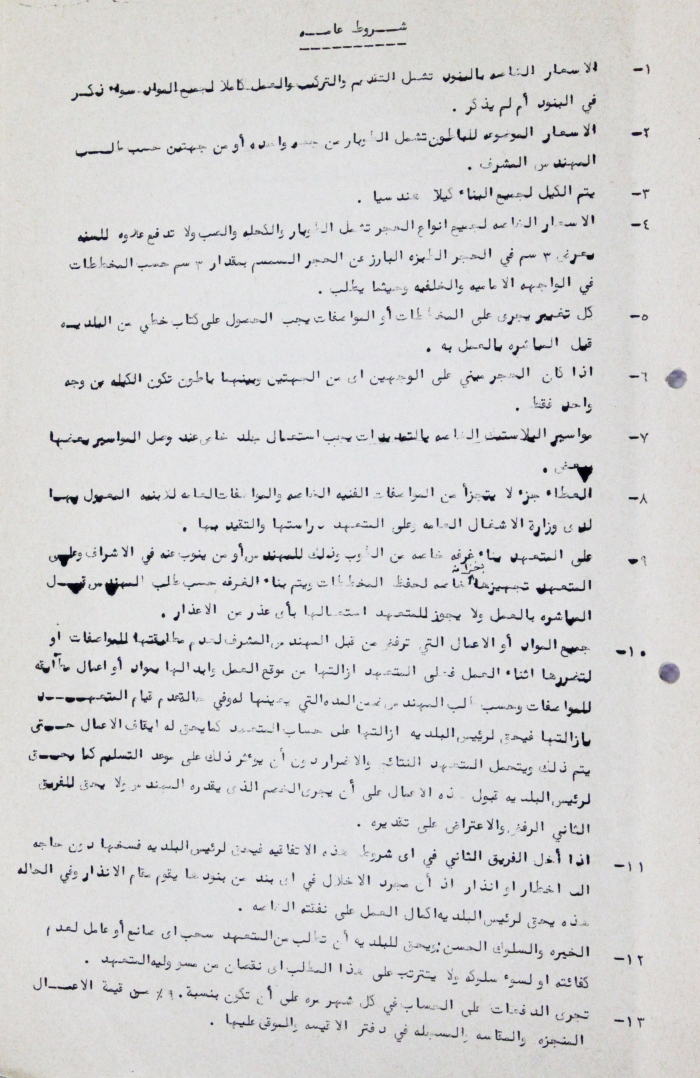 شروط عامه
١- الاسعار الخاصه بالبنود تشمل التقديم والتركيب والعمل كاملا لجميع المواد سواء ذكر
في البنود أم لم يذكر .
٢- الاسعار الموضوعه للباطون تشمل الطوبار من جهه واحده أو من جهتين حسب طلب
المهندس المشرف .
٣- يتم الكيل لجميع البناء كيلا هندسيا .
٤- الاسعار الخاصه لجميع انواع الحجر تشمل الطوبار والكحله والصب ولا تدفع علاوه للسنه
بعرض ٣ سم في الحجر الطبزه البارز عن الحجر المسمسم بمقدار ٣ سم حسب المخططات
في الواجهه الاماميه والخلفيه وحيثما يطلب .
٥- كل تغيير يجرى على المخططات أو المواصفات يجب الحصول على كتاب خطي من البلديه
قبل المباشره بالعمل به .
٦- اذا كان الحجر مبني على الوجهين اى من الجهتين وبينهما باطون تكون الكيله من وجه
واحد فقط .
٧- مواسير البلاستيك الخاصه بالتمديدات يجب استعمال جلد خاص عند وصل المواسير بعضها
ببعض .
٨- العطاء جزء لا يتجزأ من المواصفات الفنيه الخاصه والمواصفات العامه للابنيه المعمول بها
لدى وزارة الاشغال العامه وعلى المتعهد دراستها والتقيد بها .
٩- على المتعهد بناء غرفه خاصه من الطوب وذلك للمهندس أو من ينوب عنه في الاشراف وعلى
المتعهد تجهيزها بخزانة خاصه لحفظ المخططات ويتم بناء الغرفه حسب طلب المهندس قبل
المباشره بالعمل ولا يجوز للمتعهد استعمالها بأى عذر من الاعذار .
١٠- جميع المواد أو الاعمال التي ترفض من قبل المهندس المشرف لعدم مطابقتها للمواصفات او
لتضررها اثناء العمل فعلى المتعهد ازالتها من موقع العمل وابدالها بمواد أو اعمال مطابقه
للمواصفات وحسب طلب المهندس ضمن المده التي يعينها له وفي حالة عدم قيام المتعهد
بازالتها فيحق لرئيس البلديه ازالتها على حساب المتعهد كما يحق له ايقاف الاعمال حتى
يتم ذلك ويتحمل المتعهد النتائج والاضرار دون أن يوئثر ذلك على موعد التسليم كما يحق
لرئيس البلديه قبول هذه الاعمال على أن يجرى الخصم الذى يقدره المهندس ولا يحق للفريق
الثاني الرفض والاعتراض على تقديره .
١١- اذا أخل الفريق الثاني في اى شروط هذه الاتفاقيه فيحق لرئيس البلديه فسخها دون حاجه
الى اخطار او انذار اذ أن مجرد الاخلال في اى بند من بنودها يقوم مقام الانذار وفي الحاله
هذه يحق لرئيس البلديه اكمال العمل على نفقته الخاصه .
١٢- الخبره والسلوك الحسن : ويحق للبلديه أن تطلب من المتعهد سحب اى صانع أو عامل لعدم
كفائته او لسوء سلوكه ولا يترتب على هذا المطلب اى نقصان من مسوءوليه المتعهد .
١٣- تجرى الدفعات على الحساب في كل شهر مره على أن تكون بنسبة ٩٠٪ من قيمة الاعمال
المنجزه والمقاسه والمسجله في دفتر الاقيسه والموقع عليها .